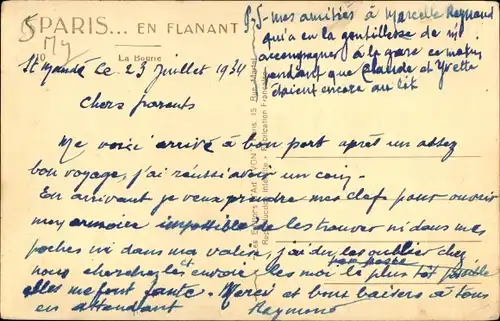 PARIS... EN FLANANT
10
La Bourse
P.S - mes amitiés à Marcelle Reynaud
qui a eu la gentillesse de m'
accompagner à la gare ce matin
pendant que Claude et Yvette
étaient encore au lit
St Mandé Le 23 Juillet 1934
Chers parents
Me voici arrivé à bon port après un assez
bon voyage, j'ai réussi avoir un coin.
En arrivant je veux prendre mes clefs pour ouvrir
mon armoire impossible de les trouver ni dans mes
poches ni dans ma valise, j'ai du les oublier chez
nous cherchez les et envoie les moi le plus tôt possible
par poste
elles me font faute. Merci et bons baisers à tous
en attendant Raymond
Fabrication Française